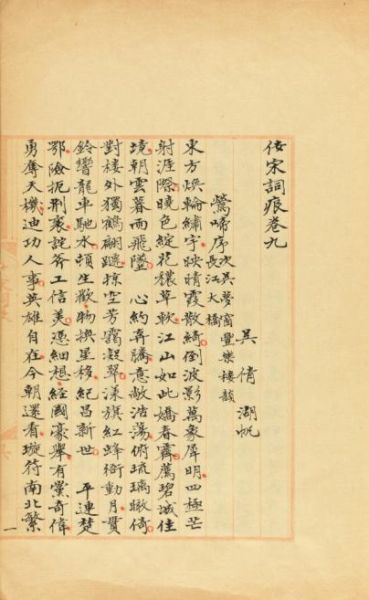 佞宋詞痕卷九
吳倩 湖帆
鶯啼序 次吳夢窗豐樂樓韻
長江大橋
東方煥輪繡宇映晴霞散綺倒波影萬象屏明四極芒
射涯際曉色綻花穠草軟江山如此嬌春霽薦碧城佳
境朝雲暮雨飛墮 心約奔騰意敞浩蕩俯琉璃暾倚
對樓外獨鶴翩躚掠空芳靄凝翠漾旗紅蜂衙動月貫
鈴響龍車馳水頓生歡物換星移紀昌新世 平連楚
鄂險扼荆襄詫斧工信美憑細想經國豪舉有黨奇偉
勇奪天機迪功人事英雄自在今朝還看璇符南北繁
一